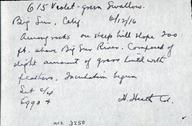 615 Violet-green Swallow.
Big Sur, Calif 6/12/16
Among rocks on steep hill slope 200
ft. above Big Sur River. Composed of
slight amount of grass lined with
feathers. Incubation begun
Set 6/4
Eggs 4 H. Heath Co.
3250